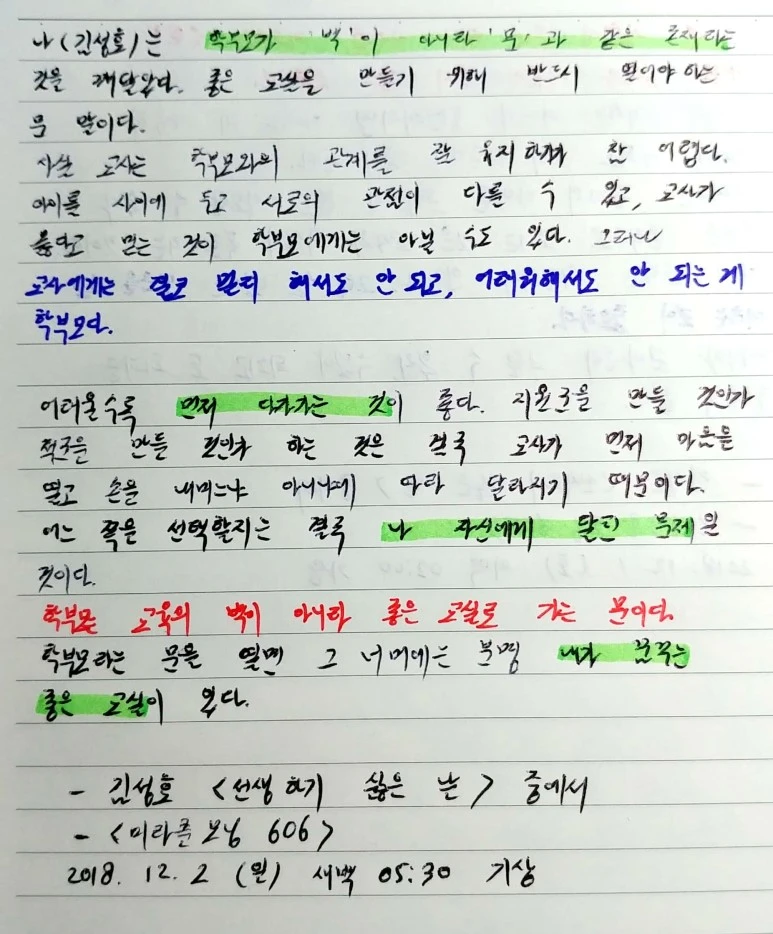 나(김성호)는 학부모가 '벽'이 아니라 '문'과 같은 존재라는
것을 깨달았다. 좋은 교실을 만들기 위해 반드시 열어야 하는
문 말이다.
사실 교사는 학부모와의 관계를 잘 유지하기가 참 어렵다.
아이를 사이에 두고 서로의 관점이 다를 수 있고, 교사가
옳다고 믿는 것이 학부모에게는 아닐 수도 있다. 그러나
교사에게는 결코 멀리 해서도 안 되고, 어려워해서도 안 되는 게
학부모다.
어려울수록 먼저 다가가는 것이 좋다. 지원군을 만들 것인가
적군을 만들 것인가 하는 것은 결국 교사가 먼저 마음을
열고 손을 내미느냐 아니냐에 따라 달라지기 때문이다.
어느 쪽을 선택할지는 결국 나 자신에게 달린 문제인
것이다.
학부모는 교육의 벽이 아니라 좋은 교실로 가는 문이다.
학부모라는 문을 열면 그 너머에는 분명 내가 꿈꾸는
좋은 교실이 있다.
- 김성호 <선생 하기 싫은 날> 중에서
- <미라클모닝 606>
2018. 12. 2 (월) 새벽 05:30 기상